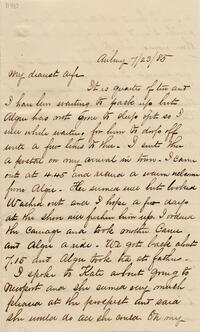 Auburn 7/23/85
My dearest wife
It is quarter of ten and
I have been waiting to pack up but
Algie has not gone to sleep yet so I
will while waiting for him to drop off
write a few lines to thee. I sent thee
a postal on my arrival in town. I came
out at 4.45 and found a warm welcome
from Algie. He seemed well but looked
washed out and I hope a few days
at the shore will freshen him up. I ordered
the carriage and took mother Carrie
and Algie a ride. We got back about
7.15 and Algie took tea at father's.
I spoke to Kate about going to
Newport and she seemed very much
pleased at the prospect and said
she would do all she could. On my